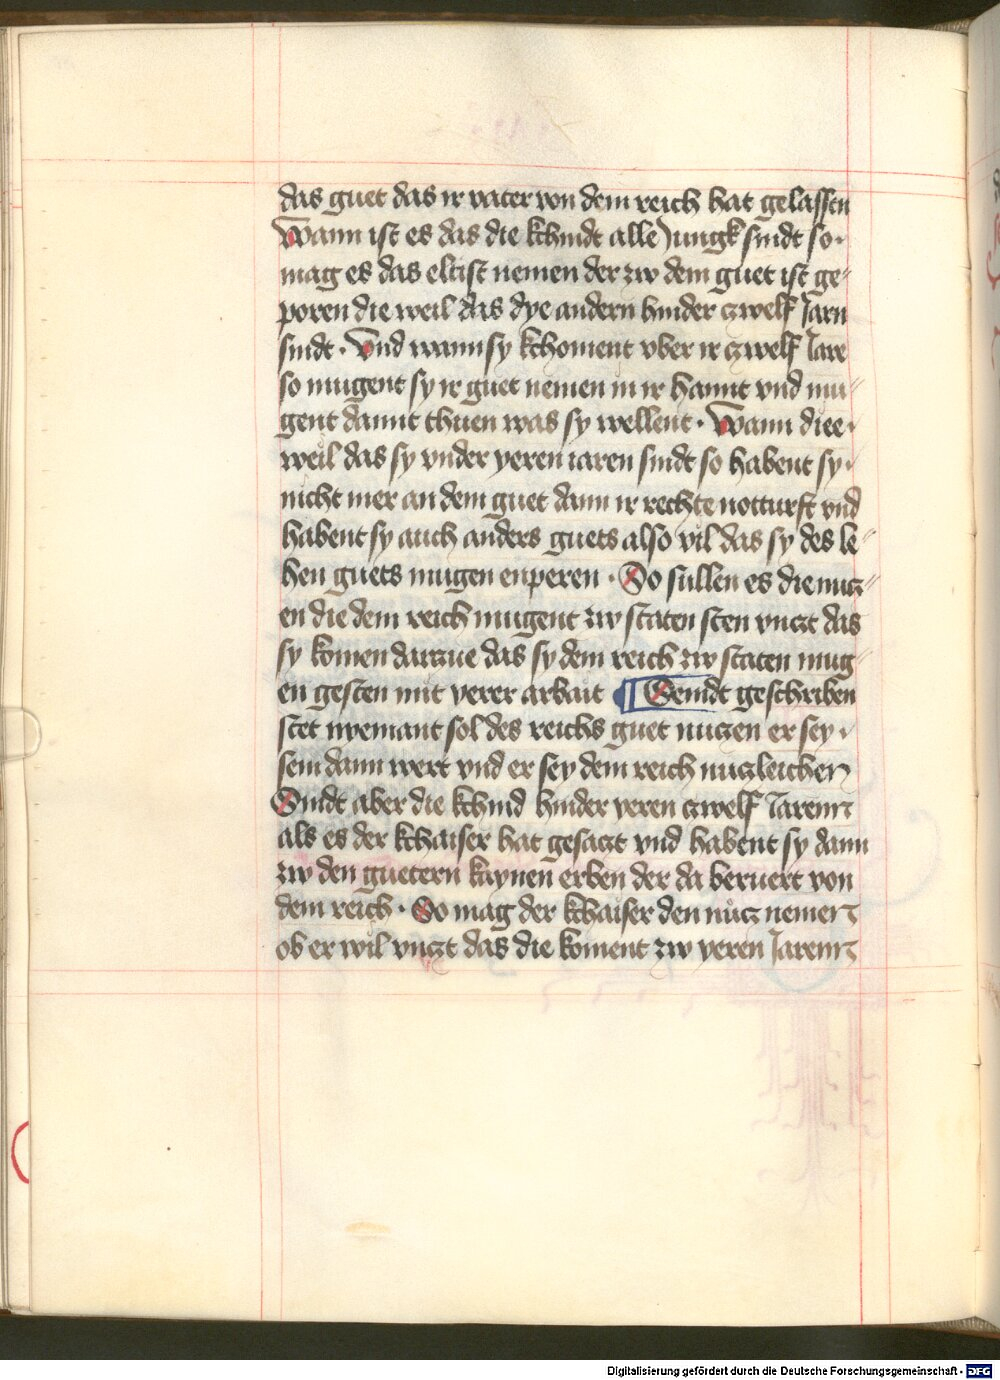 das guet das ir vater von dem reich hat gelassen
Wann ist es das die kchindt alle Jungk sindt so·
mag es das eltist nemen der zw dem guet ist ge-
poren die weil das dye andern hinder zwelf Jarn
sindt · Vnd wann sy kchoment vber ir zwelf Jare
so mugent sy ir guet nemen in ir hannt vnd mu-
gent damit thuen was sy wellent · Wann diee·
weil das sy vnder yeren iaren sindt so habent sy·
nicht mer an dem guet dann ir rechte notturft vnd
habent sy auch anders guets also vil das sy des le-
hen guets mugen enperen · So sullen es die nucz-
en die dem reich mugent zw staten sten vnczt das
sy komen darzue das sy dem reich zw staten mug-
en gesten mit yerer arbait ¶ Seindt geschriben
stet nyemant sol des reichs guet nuczen er sey·
sein dann wert vnd er sey dem reich nuczleichen
Sindt aber die kchind hinder yeren zwelf Jarenn
als es der kchaiser hat gesaczt vnd habent sy dann
zw den guetern kaynen erben der da beruert von
dem reich · So mag der kchaiser den nucz nemen
ob er wil vnczt das die koment zw yeren Jarenn
Digitalisierung gefördert durch die Deutsche Forschungsgemeinschaft - DFG